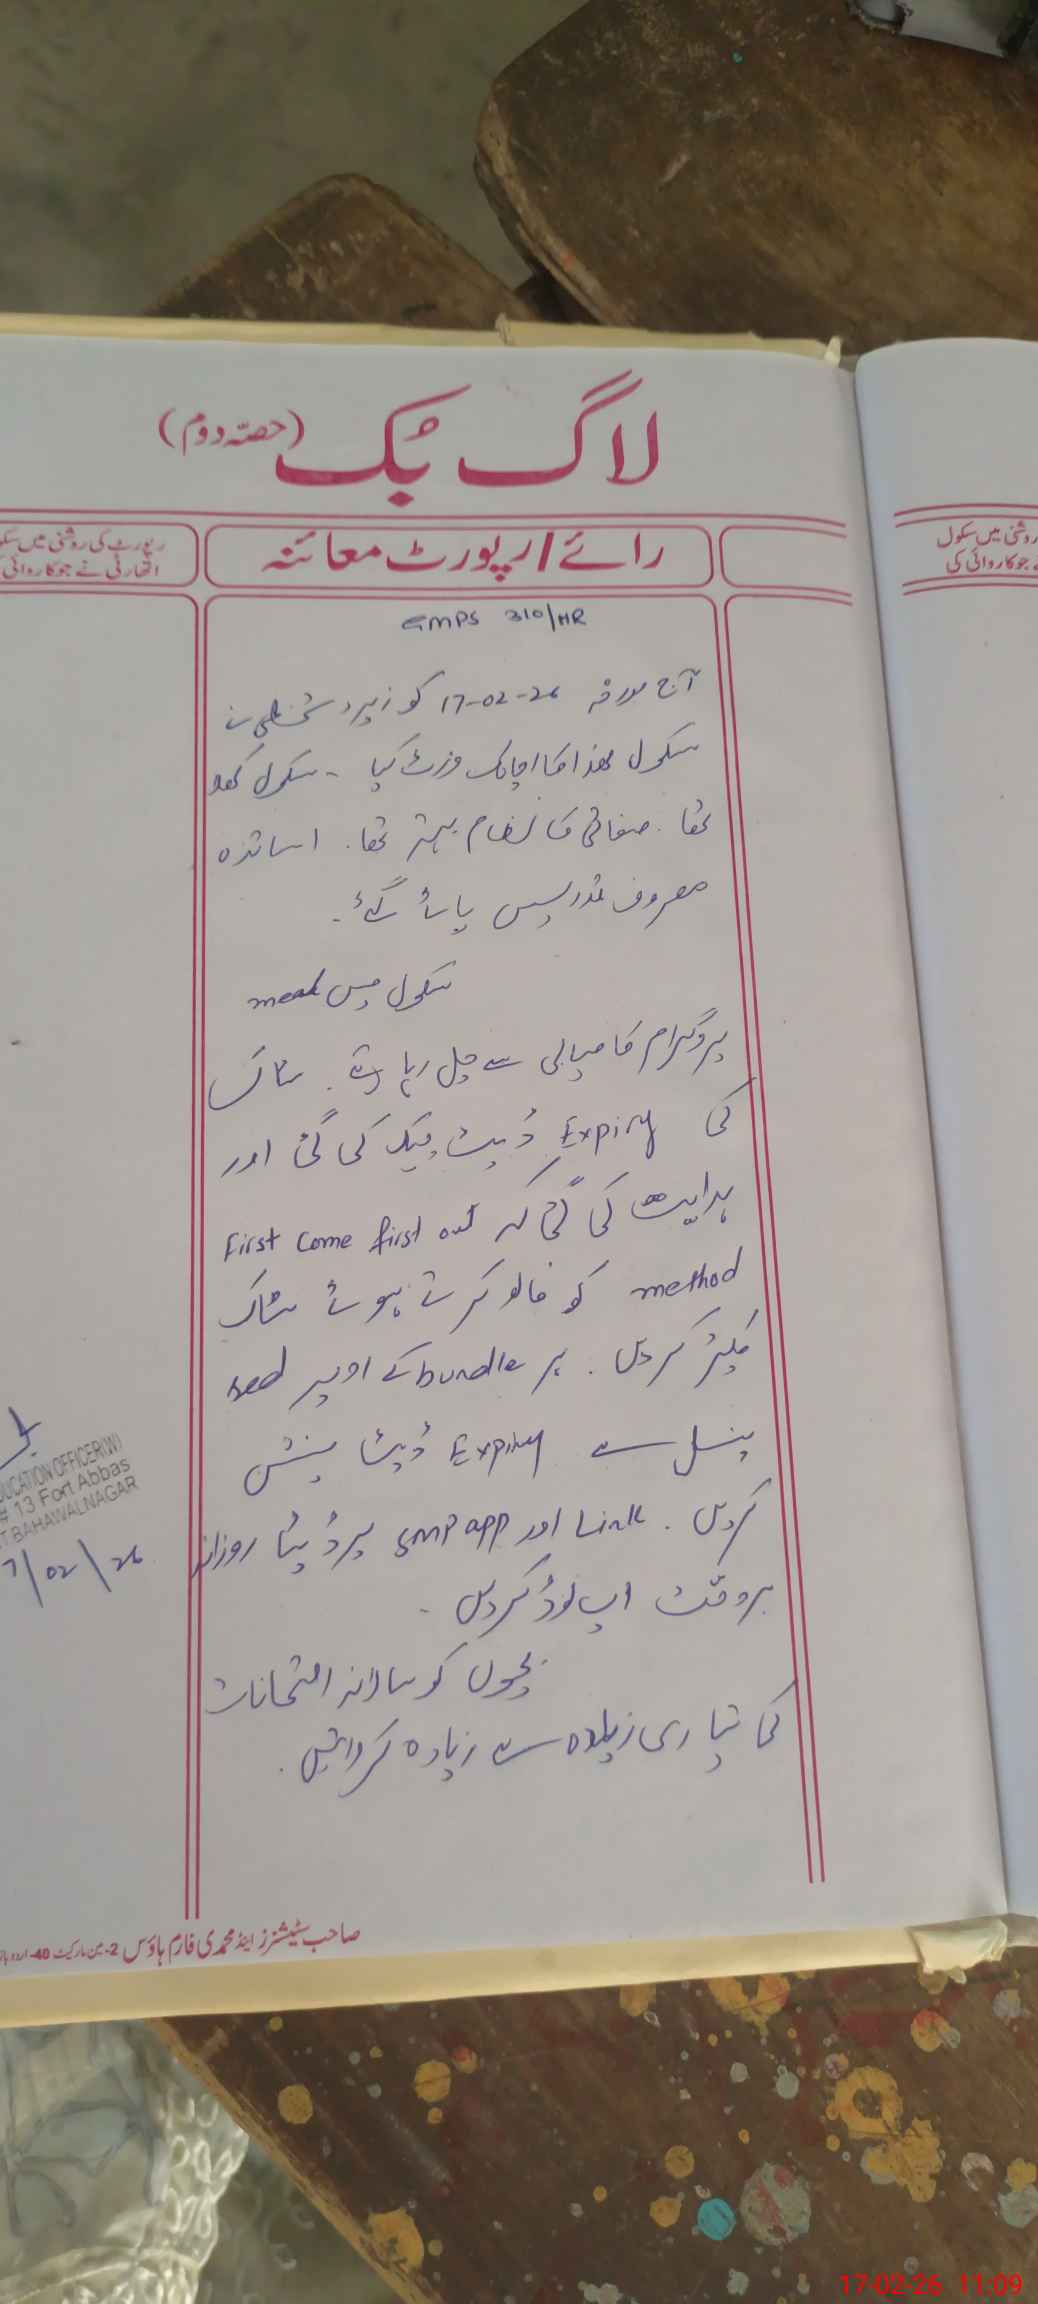 لاگ بُک (حصّہ دوم)
رائے/رپورٹ معائنہ
رپورٹ کی روشنی میں سکو
اتھارٹی نے جو کاروائی ک
روشنی میں سکول
نے جو کاروائی کی
GMPS 310/HR
آج مورخہ 17-02-26 کو زیر دستخطی نے
سکول ھذا کا اچانک وزٹ کیا - سکول کھلا
تھا . صفائی کا نظام بہتر تھا . اساتذہ
مصروف تدریس پائے گئے -
سکول میں meal
پروگرام کامیابی سے چل رہا ہے . سٹاک
کی Expiry ڈیٹ چیک کی گئی اور
ہدایت کی گئی کہ First come first out
method کو فالو کرتے ہوئے سٹاک
کلیئر کردیں . ہر bundle کے اوپر red
پنسل سے Expiry ڈیٹ مینشن
کردیں . Link اور SMP app پر ڈیٹا روزانہ
بروقت اپ لوڈ کردیں -
بچوں کو سالانہ امتحانات
کی تیاری زیادہ سے زیادہ کروائیں .
DUCATION OFFICER(W)
# 13 Fort Abbas
T.BAHAWALNAGAR
7/02/26
صاحب سٹیشنرز اینڈ محمدی فارم ہاؤس 2-مین مارکیٹ 40-اردو باز
17-02-26 11:09